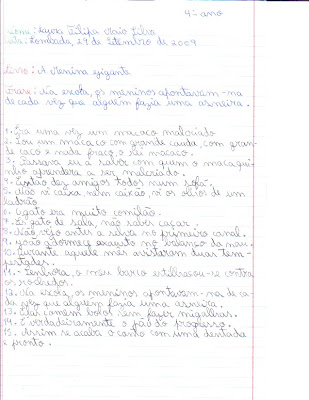 4º ano
Nome: Laura Filipa Maio Silva
Data: Lombada, 29 de Setembro de 2009
Livro: A Menina gigante
Frase: Na escola, os meninos apontavam-na
de cada vez que alguém fazia uma asneira.
1. Era uma vez um macaco malcriado
2. Sou um macaco com grande cauda, com gran
de caco e nada fraco, o rei macaco.
3. Passava eu a saber com quem o macaqui-
nho aprendera a ser malcriado.
4. Estão dez amigos todos num sofá.
5. Não vi caixa, nem caixão, vi os olhos de um
ladrão
6. O gato era muito comilão.
7. Es gato de sala, não sabes caçar.
8. Não, vejo antes a selva no primeiro canal.
9. João adormece exausto no balanço da nau.
10. Durante aquele mês avistaram duas tem-
pestades.
11. - Senhora, o meu barco estilhaçou-se contra
os rochedos.
12. Na escola, os meninos apontavam-na de ca
da vez que alguém fazia uma asneira.
13. Elas comem bolos sem fazer migalhas.
14. É verdadeiramente o pão do progresso.
15. Assim se acaba o conto com uma dentada
e pronto.